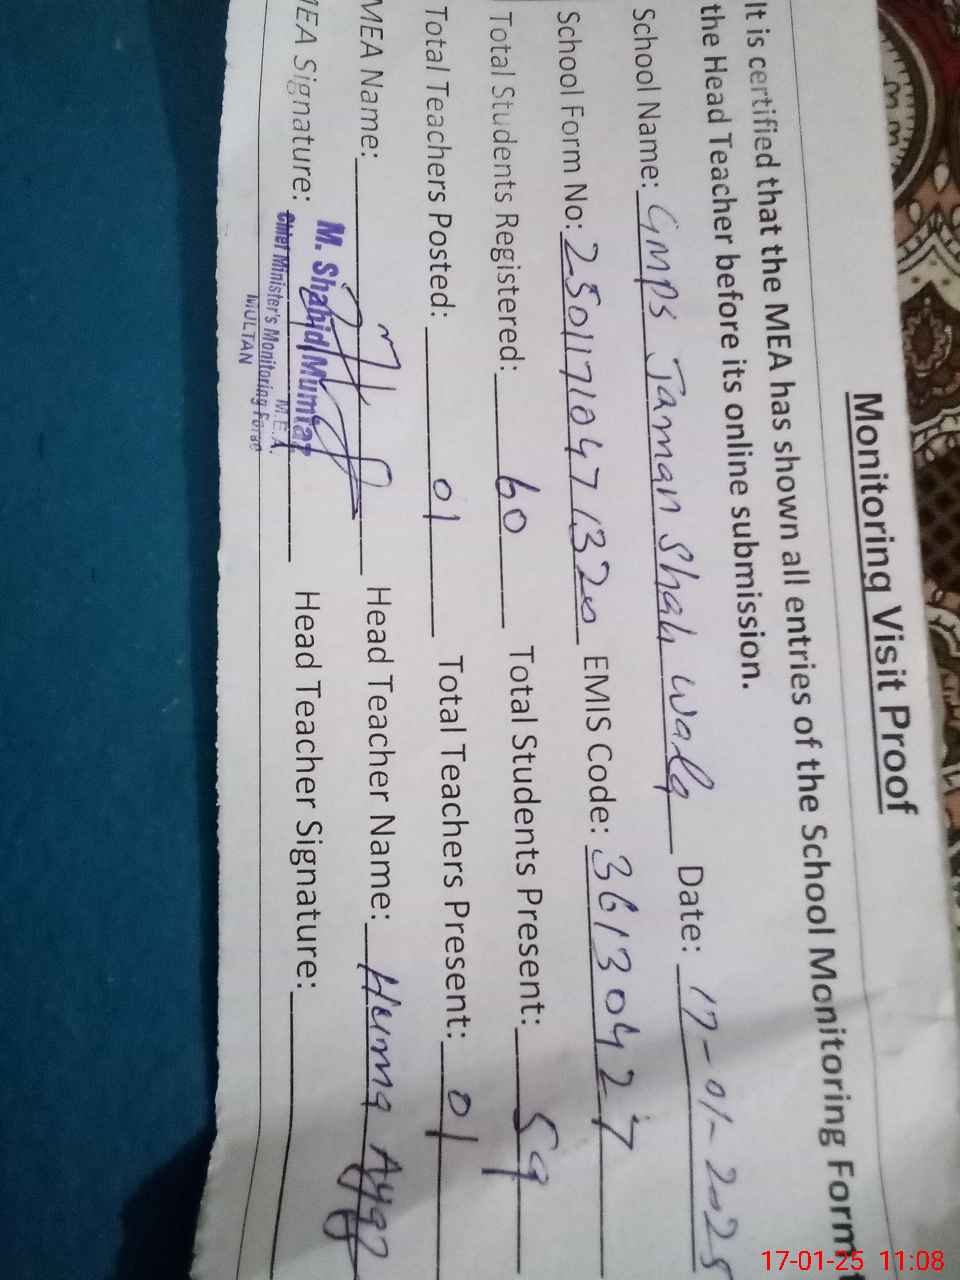 Monitoring Visit Proof
It is certified that the MEA has shown all entries of the School Monitoring Form
the Head Teacher before its online submission.
School Name: GMPS Jaman Shah wala Date: 17-01-2025
School Form No: 25011710471320 EMIS Code: 36130427
Total Students Registered: 60 Total Students Present: 59
Total Teachers Posted: 01 Total Teachers Present: 01
MEA Name: Head Teacher Name: Huma Ayaz
MEA Signature: Head Teacher Signature:
M. Shahid Mumtaz
M.E.A.
Chief Minister's Monitoring Force
MULTAN
17-01-25 11:08